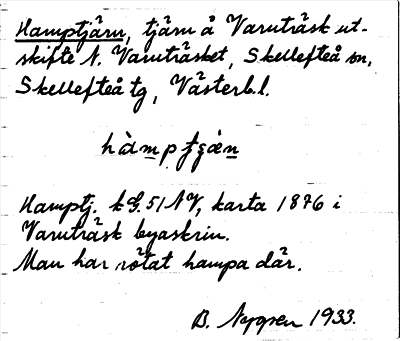 Hamptjärn, tjärn å Varuträsk ut-
skifte N. Varuträsket, Skellefteå sn,
Skellefteå tg, Västerb. l.
hàmpʃʒæ̀n
Hamptj. kG. 51 NV, karta 1876 i
Varuträsk byaskrin.
Man har rötat hampa där.
B. Nygren 1933.